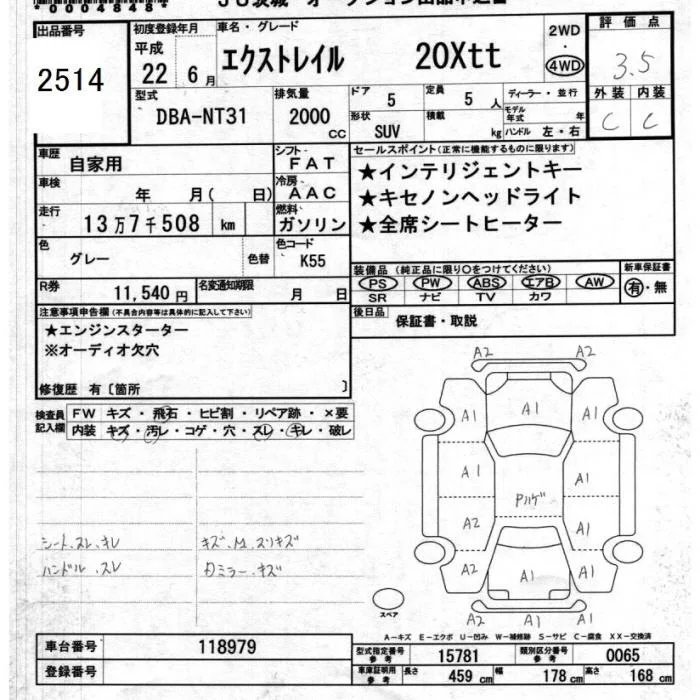 *0004848*
出品番号
2514
初度登録年月
平成
22年6月
車名・グレード
エクストレイル 20Xtt
2WD
・
4WD
評価点
3.5
型式
DBA-NT31
排気量
2000
CC
ドア 5
定員 5人
形状 SUV
積載 kg
ディーラー・並行
モデル年式 年
ハンドル 左・右
外装 内装
C C
車歴 自家用
シフト FAT
車検 年 月( 日)
冷房 AAC
走行 13万7千508 km
燃料 ガソリン
色 グレー 色替
色コード K55
R券 11,540円
名変通知期限 月 日
セールスポイント(正常に機能するものに限ります)
★インテリジェントキー
★キセノンヘッドライト
★全席シートヒーター
装備品(純正品に限り○をつけてください)
新車保証書
PS PW ABS エアB AW
SR ナビ TV カワ
有・無
後日品 保証書・取説
注意事項申告欄(不具合内容等は具体的に記入して下さい)
★エンジンスターター
※オーディオ欠穴
修復歴 有〔箇所 〕
検査員記入欄
FW キズ・飛石・ヒビ割・リペア跡・×要
内装 キズ・汚レ・コゲ・穴・スレ・キレ・破レ
シート、スレ、キレ
ハンドル、スレ
キズ、M、スリキズ
ミラー、キズ
A2 A2
A1 A1 A1
A1 A1
Pハゲ
A2 A1
A2 A1 A1
A2 A1
スペア
A-キズ E-エクボ U-凹み W-補修跡 S-サビ C-腐食 XX-交換済
車台番号 118979
登録番号
型式指定番号 参考 15781
類別区分番号 参考 0065
車庫証明用 参考 長さ 459 cm 幅 178 cm 高さ 168 cm